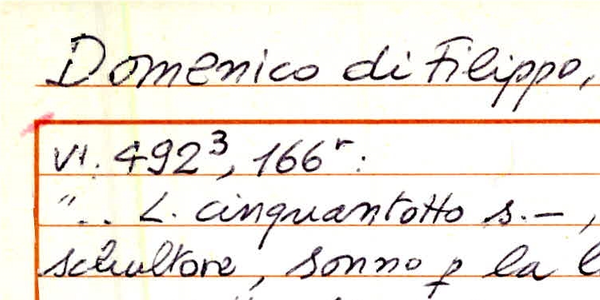 Domenico di Filippo,
VI. 492³, 166ʳ:
"... L. cinquantotto s. —,
schultore, sonno p la